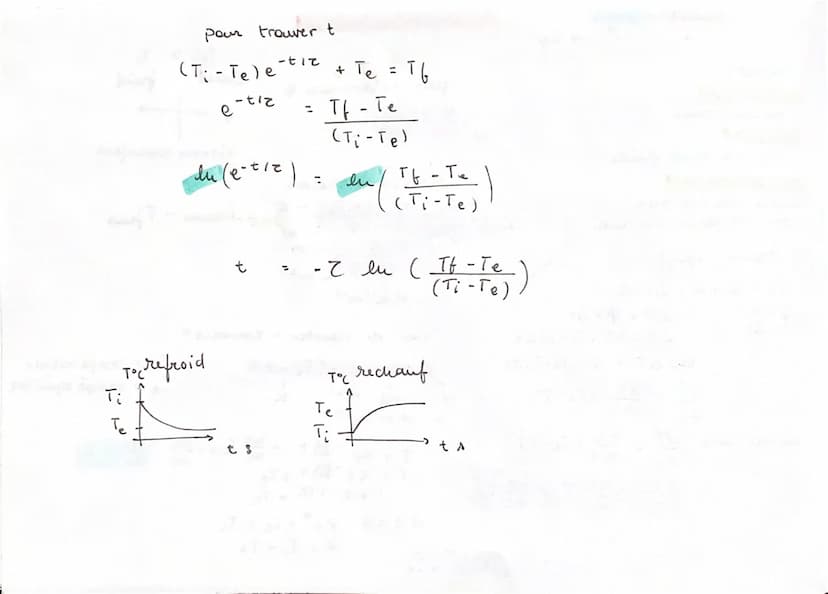 pour trouver t
(Ti - Te) e^-t/τ + Te = Tf
e^-t/τ = Tf - Te / (Ti - Te)
ln(e^-t/τ) = ln(Tf - Te / (Ti - Te))
t = -τ ln (Tf - Te / (Ti - Te))
T°C refroid
Ti
Te
t s
T°C rechauf
Te
Ti
t s